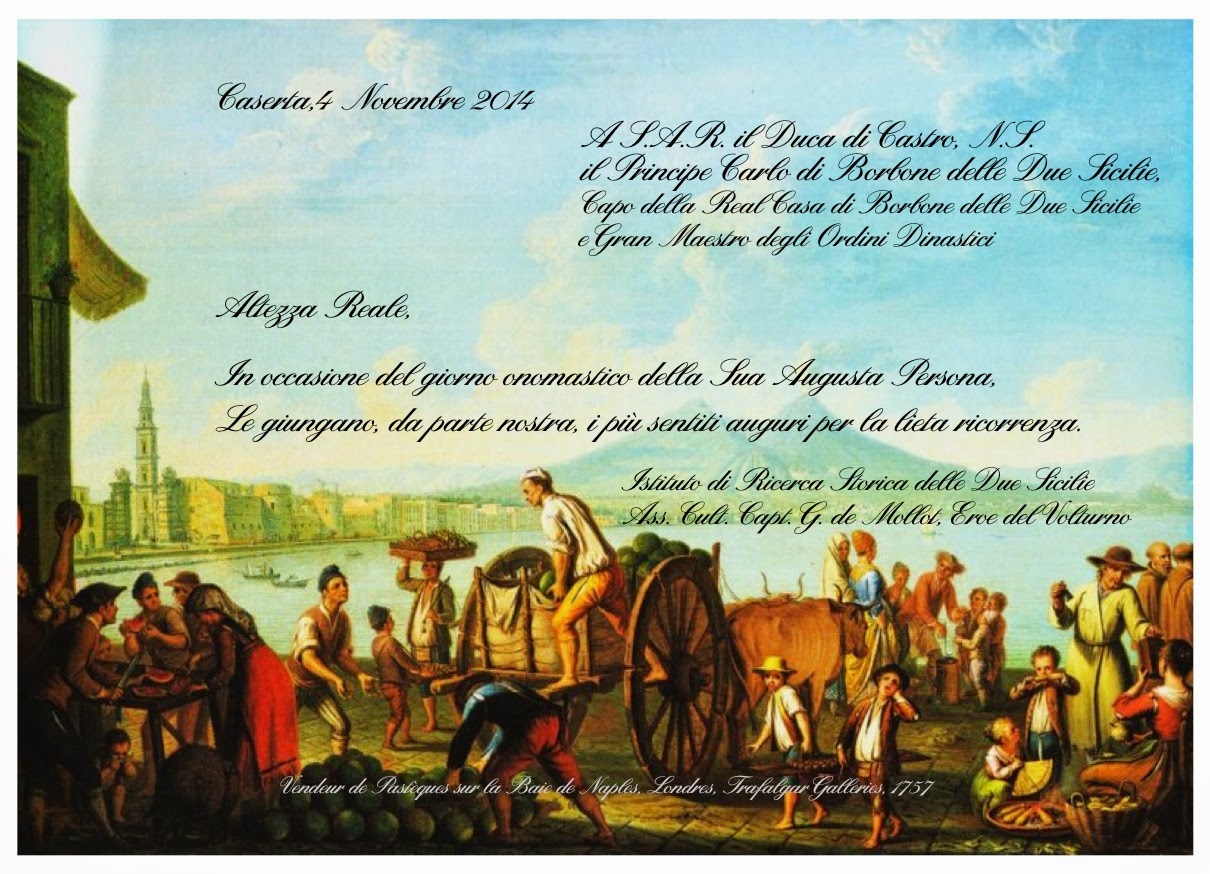 Caserta,4 Novembre 2014
A S.A.R. il Duca di Castro, N.S.
il Principe Carlo di Borbone delle Due Sicilie,
Capo della Real Casa di Borbone delle Due Sicilie
e Gran Maestro degli Ordini Dinastici
Altezza Reale,
In occasione del giorno onomastico della Sua Augusta Persona,
Le giungano, da parte nostra, i più sentiti auguri per la lieta ricorrenza.
Istituto di Ricerca Storica delle Due Sicilie
Ass. Cult. Capt. G. de Mollot, Eroe del Volturno
Vendeur de Pastèques sur la Baie de Naples, Londres, Trafalgar Galleries, 1757